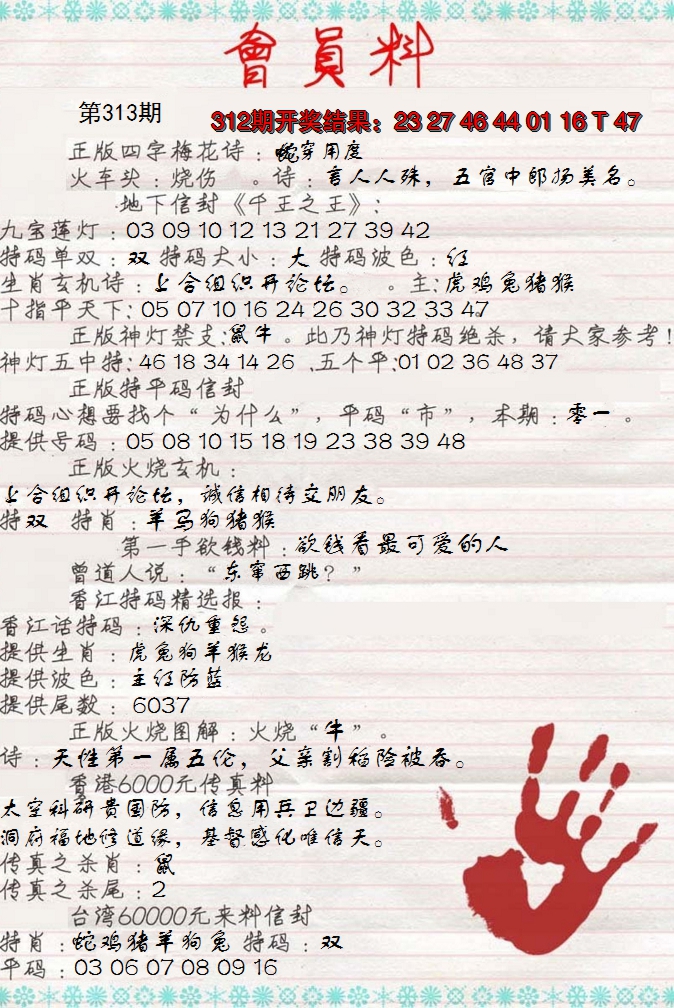 會員料
第313期
312期开奖结果：23 27 46 44 01 16 T 47
正版四字梅花诗：蛇穿用度
火车头：烧伤 。诗：言人人殊，五官中郎扬美名。
地下信封《千王之王》：
九宝莲灯：03 09 10 12 13 21 27 39 42
特码单双：双 特码大小：大 特码波色：红
生肖玄机诗：上合组织开论坛。 。主：虎鸡兔猪猴
十指平天下：05 07 10 16 24 26 30 32 33 47
正版神灯禁支：鼠牛。此乃神灯特码绝杀，请大家参考！
神灯五中特：46 18 34 14 26 .五个平：01 02 36 48 37
正版特平码信封
特码心想要找个“为什么”，平码“市”，本期：零一 。
提供号码：05 08 10 15 18 19 23 38 39 48
正版火烧玄机：
上合组织开论坛，诚信相待交朋友。
特双 特肖：羊马狗猪猴
第一手欲钱料：欲钱看最可爱的人
曾道人说：“东窜西跳？”
香江特码精选报：
香江话特码：深仇重怨。
提供生肖：虎兔狗羊猴龙
提供波色：主红防蓝
提供尾数：6037
正版火烧图解：火烧“牛”。
诗：天性第一属五伦，父亲割稻险被吞。
香港6000元传真料
太空科研贵国防，信息用兵卫边疆。
洞府福地修道缘，基督感化唯信天。
传真之杀肖：鼠
传真之杀尾：2
台湾60000元来料信封
特肖：蛇鸡猪羊狗兔 特码：双
平码：03 06 07 08 09 16